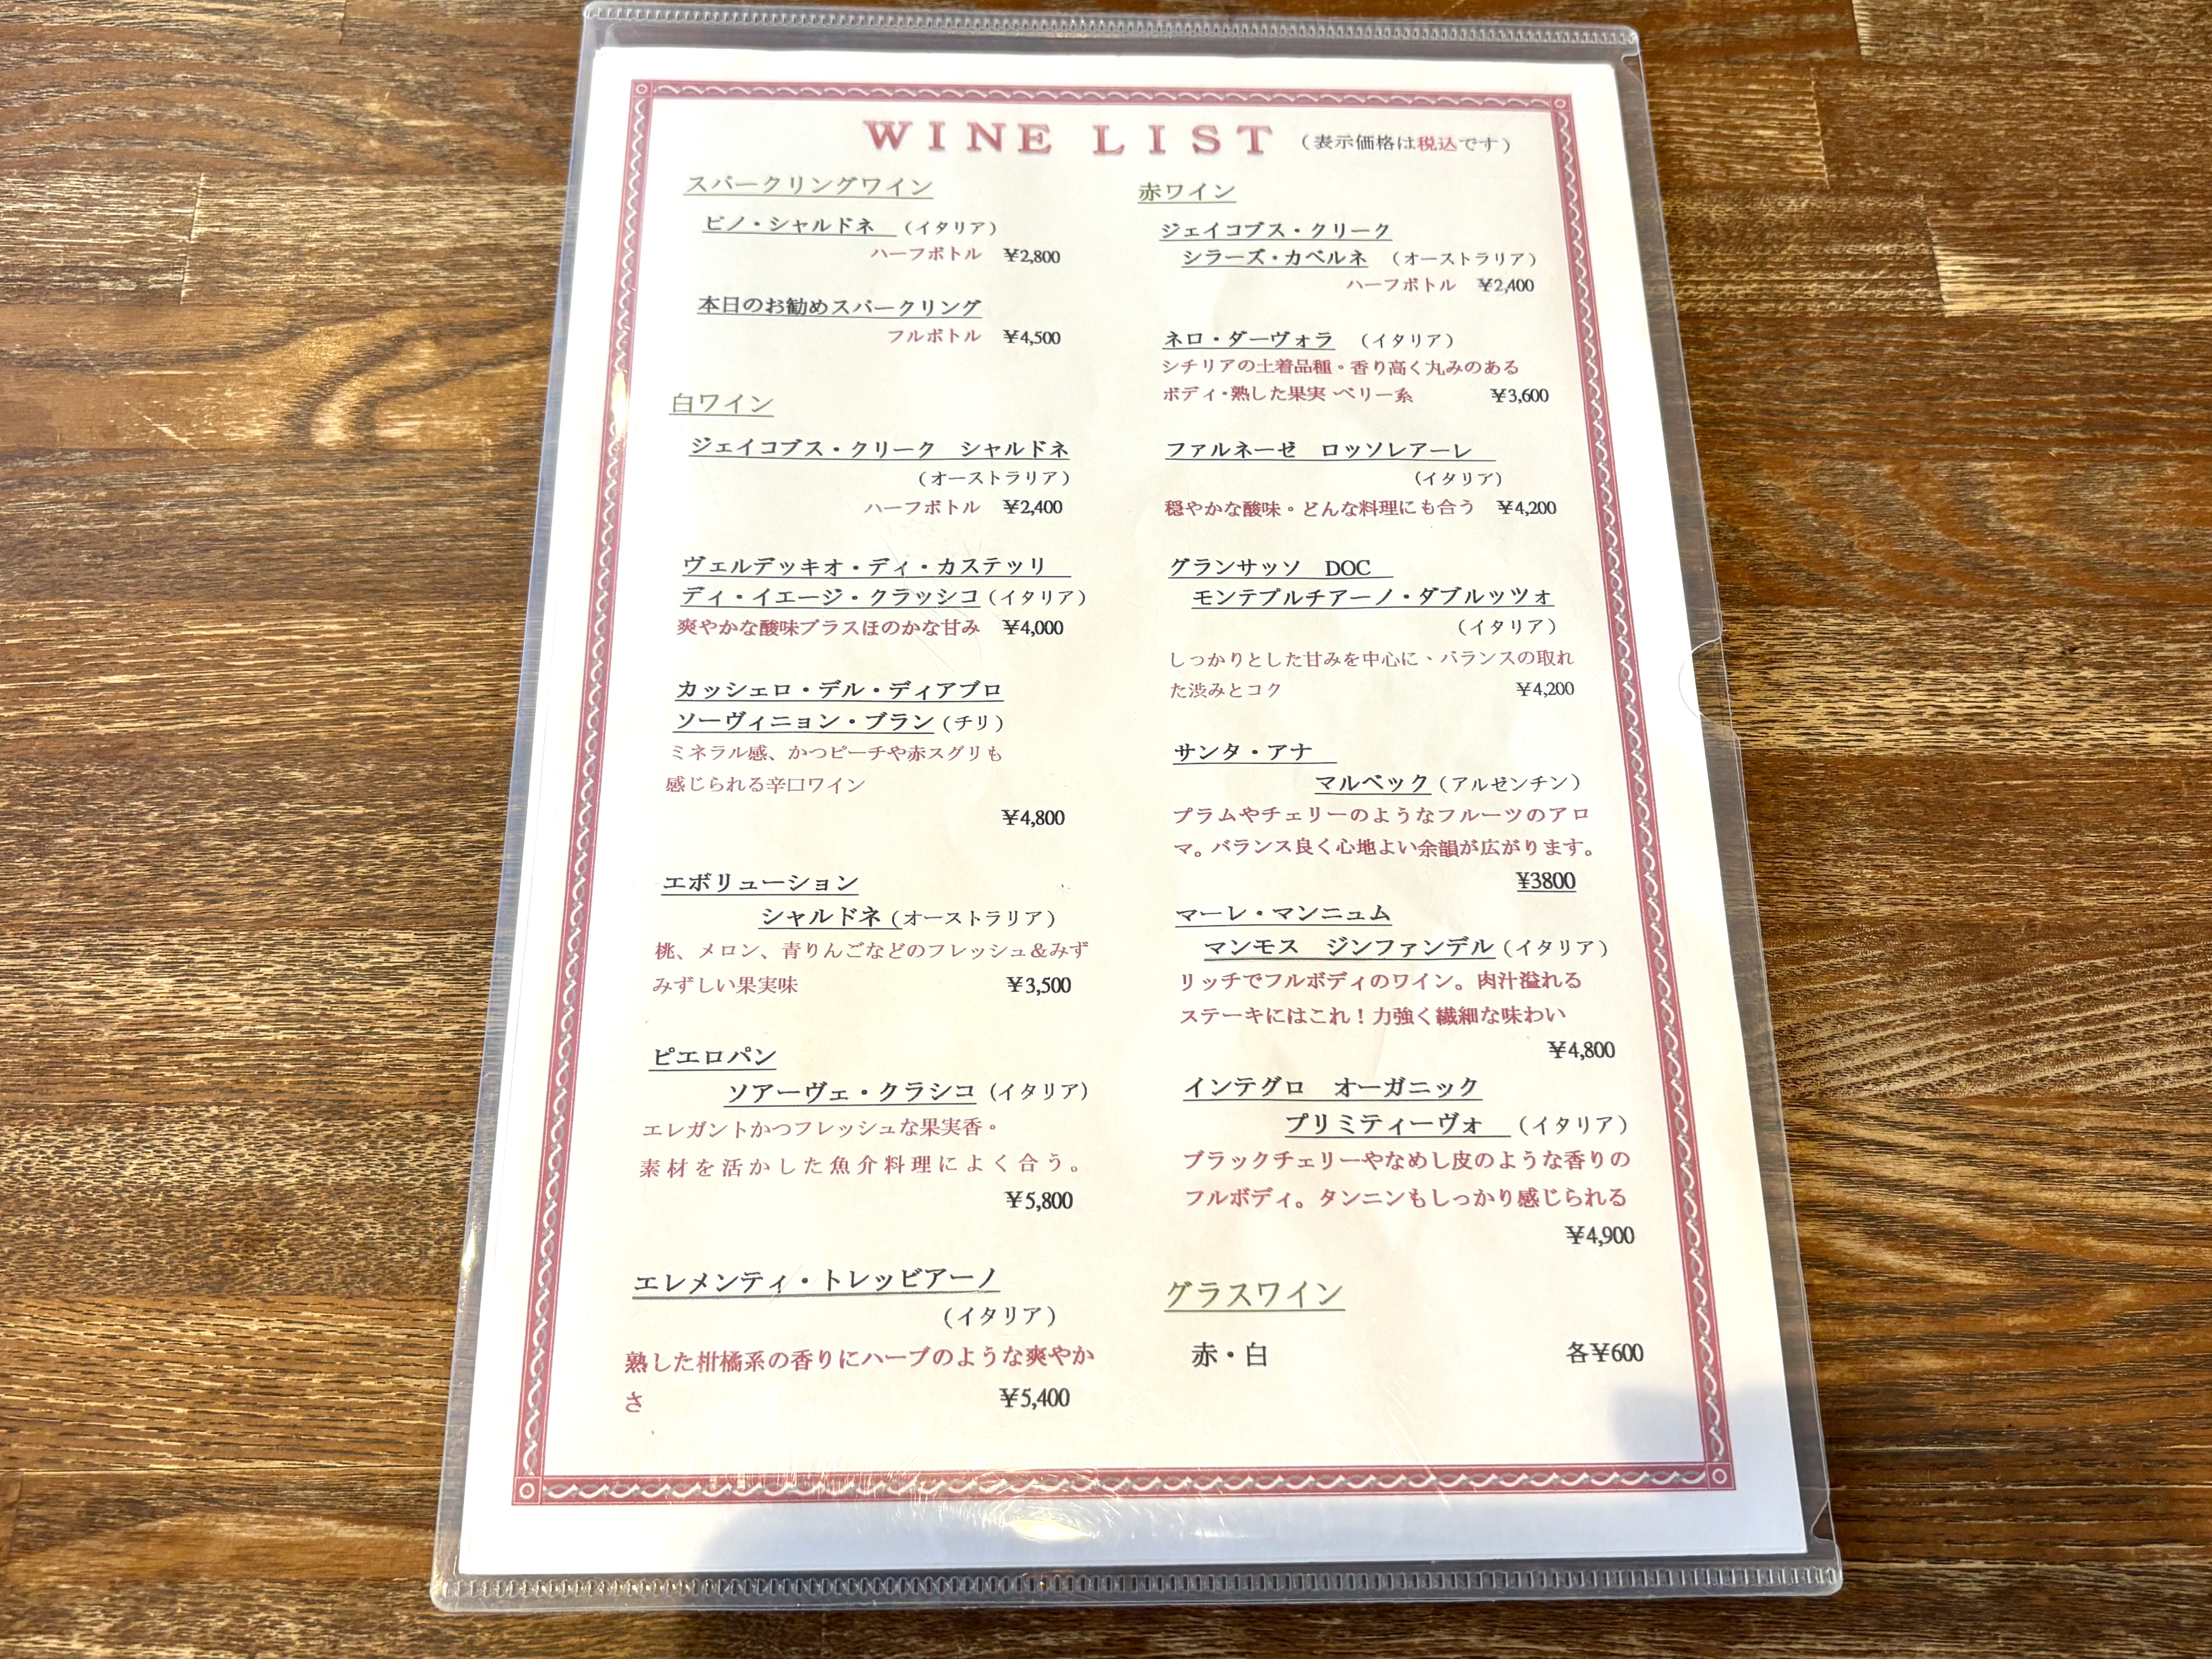 WINE LIST (表示価格は税込です)
スパークリングワイン
ピノ・シャルドネ (イタリア)
ハーフボトル ¥2,800
本日のお勧めスパークリング
フルボトル ¥4,500
白ワイン
ジェイコブス・クリーク シャルドネ
(オーストラリア)
ハーフボトル ¥2,400
ヴェルデッキオ・ディ・カステッリ
ディ・イエージ・クラッシコ(イタリア)
爽やかな酸味プラスほのかな甘み ¥4,000
カッシェロ・デル・ディアブロ
ソーヴィニョン・ブラン(チリ)
ミネラル感、かつピーチや赤スグリも
感じられる辛口ワイン
¥4,800
エボリューション
シャルドネ(オーストラリア)
桃、メロン、青りんごなどのフレッシュ&みず
みずしい果実味 ¥3,500
ピエロパン
ソアーヴェ・クラシコ (イタリア)
エレガントかつフレッシュな果実香。
素材を活かした魚介料理によく合う。
¥5,800
エレメンティ・トレッビアーノ
(イタリア)
熟した柑橘系の香りにハーブのような爽やか
さ ¥5,400
赤ワイン
ジェイコブス・クリーク
シラーズ・カベルネ (オーストラリア)
ハーフボトル ¥2,400
ネロ・ダーヴォラ (イタリア)
シチリアの土着品種。香り高く丸みのある
ボディ・熟した果実・ベリー系 ¥3,600
ファルネーゼ ロッソレアーレ
(イタリア)
穏やかな酸味。どんな料理にも合う ¥4,200
グランサッソ DOC
モンテプルチアーノ・ダブルッツォ
(イタリア)
しっかりとした甘みを中心に、バランスの取れ
た渋みとコク ¥4,200
サンタ・アナ
マルベック(アルゼンチン)
プラムやチェリーのようなフルーツのアロ
マ。バランス良く心地よい余韻が広がります。
¥3800
マーレ・マンニュム
マンモス ジンファンデル(イタリア)
リッチでフルボディのワイン。肉汁溢れる
ステーキにはこれ!力強く繊細な味わい
¥4,800
インテグロ オーガニック
プリミティーヴォ (イタリア)
ブラックチェリーやなめし皮のような香りの
フルボディ。タンニンもしっかり感じられる
¥4,900
グラスワイン
赤・白 各¥600